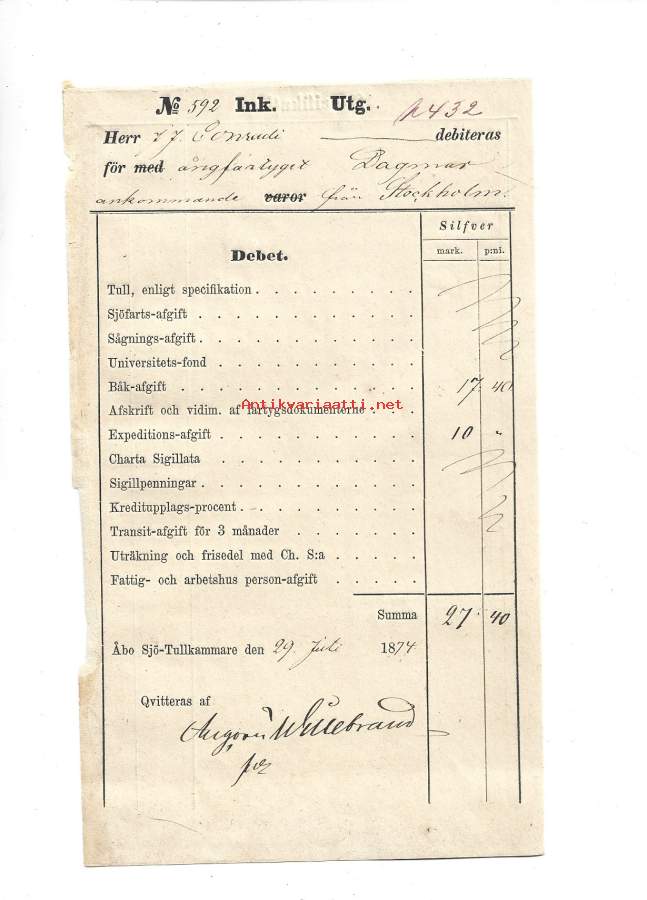 № 592 Ink. Utg. 432
Herr Conradi debiteras
för med ångfartyget Dagmar
ankommande varor från Stockholm.
Silfver
mark. p:ni.
Debet.
Tull, enligt specifikation
Sjöfarts-afgift
Sågnings-afgift
Universitets-fond
Båk-afgift 17 40
Antikvariaatti.net
Afskrift och vidim. af fartygsdokumenterne
Expeditions-afgift 10 "
Charta Sigillata
Sigillpenningar
Kreditupplags-procent
Transit-afgift för 3 månader
Uträkning och frisedel med Ch. S:a
Fattig- och arbetshus person-afgift
Summa 27. 40
Åbo Sjö-Tullkammare den 29. Juli 1874.
Qvitteras af
Willebrand